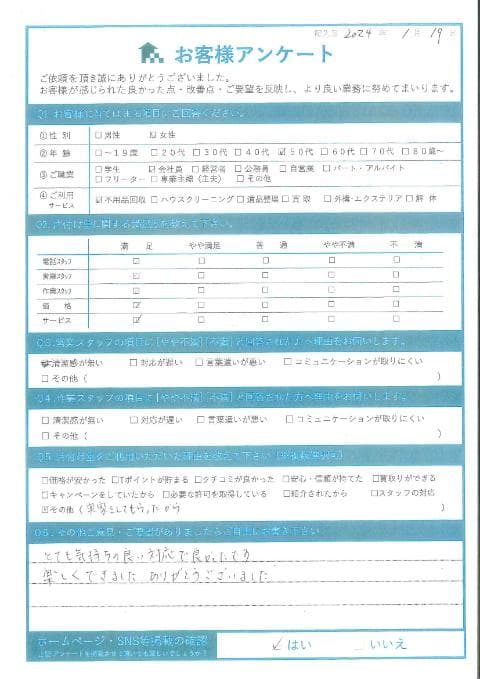 記入日 2024 年 1 月 19 日
お客様アンケート
ご依頼を頂き誠にありがとうございました。
お客様が感じられた良かった点・改善点・ご要望を反映し、より良い業務に努めてまいります。
Q1.お客様に当てはまる項目にご回答ください。
①性 別 □男性 ☑女性
②年 齢 □~19歳 □20代 □30代 □40代 ☑50代 □60代 □70代 □80歳~
③ご職業 □学生 ☑会社員 □経営者 □公務員 □自営業 □パート・アルバイト
□フリーター □専業主婦(主夫) □その他
④ご利用サービス ☑不用品回収 □ハウスクリーニング □遺品整理 □買取 □外構・エクステリア □解体
Q2.片付け堂に関する満足度を教えて下さい。
満 足 やや満足 普 通 やや不満 不 満
電話スタッフ □ □ □ □ □
営業スタッフ □ □ □ □
作業スタッフ □ □ □ □
価 格 ☑ □ □ □ □
サービス ☑ □ □ □ □
Q3.営業スタッフの項目に[やや不満][不満]と回答された方へ理由をお伺いします。
清潔感が無い □対応が遅い □言葉遣いが悪い □コミュニケーションが取りにくい
□その他( )
Q4.作業スタッフの項目に[やや不満][不満]と回答された方へ理由をお伺いします。
□清潔感が無い □対応が遅い □言葉遣いが悪い □コミュニケーションが取りにくい
□その他( )
Q5.片付け堂をご利用いただいた理由を教えて下さい(複数選択可)
□価格が安かった □Tポイントが貯まる □クチコミが良かった □安心・信頼が持てた □買取りができる
□キャンペーンをしていたから □必要な許可を取得している □紹介されたから □スタッフの対応
☑その他( してもらったから )
Q6.その他ご意見・ご要望がありましたらご自由にお書き下さい
とても気持ちの良い対応で良かったです
楽しくできました ありがとうございました
ホームページ・SNS等掲載の確認 ✓はい いいえ
上記アンケートを掲載させて頂いても宜しいでしょうか?